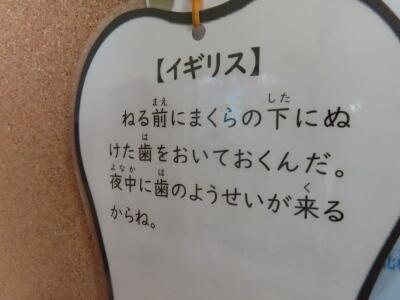 【イギリス】
ねる前にまくらの下にぬ
けた歯をおいておくんだ。
夜中に歯のようせいが来る
からね。